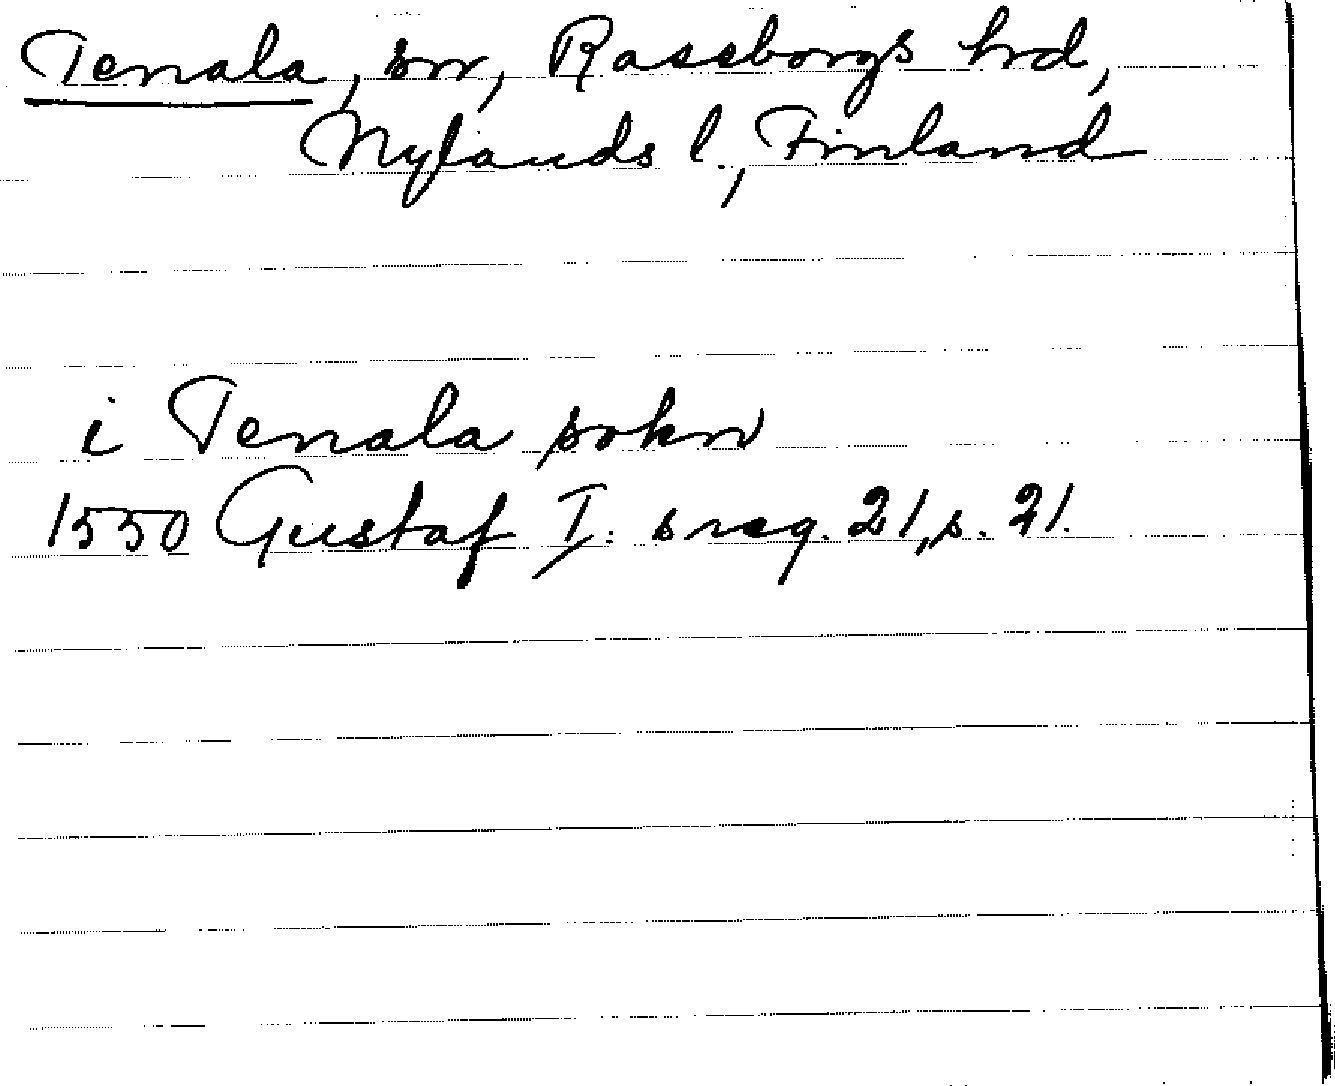 Tenala, sn, Raseborgs hrd,
Nylands l., Finland
i Tenala sokn
1550 Gustaf I:s reg. 21, s. 21.